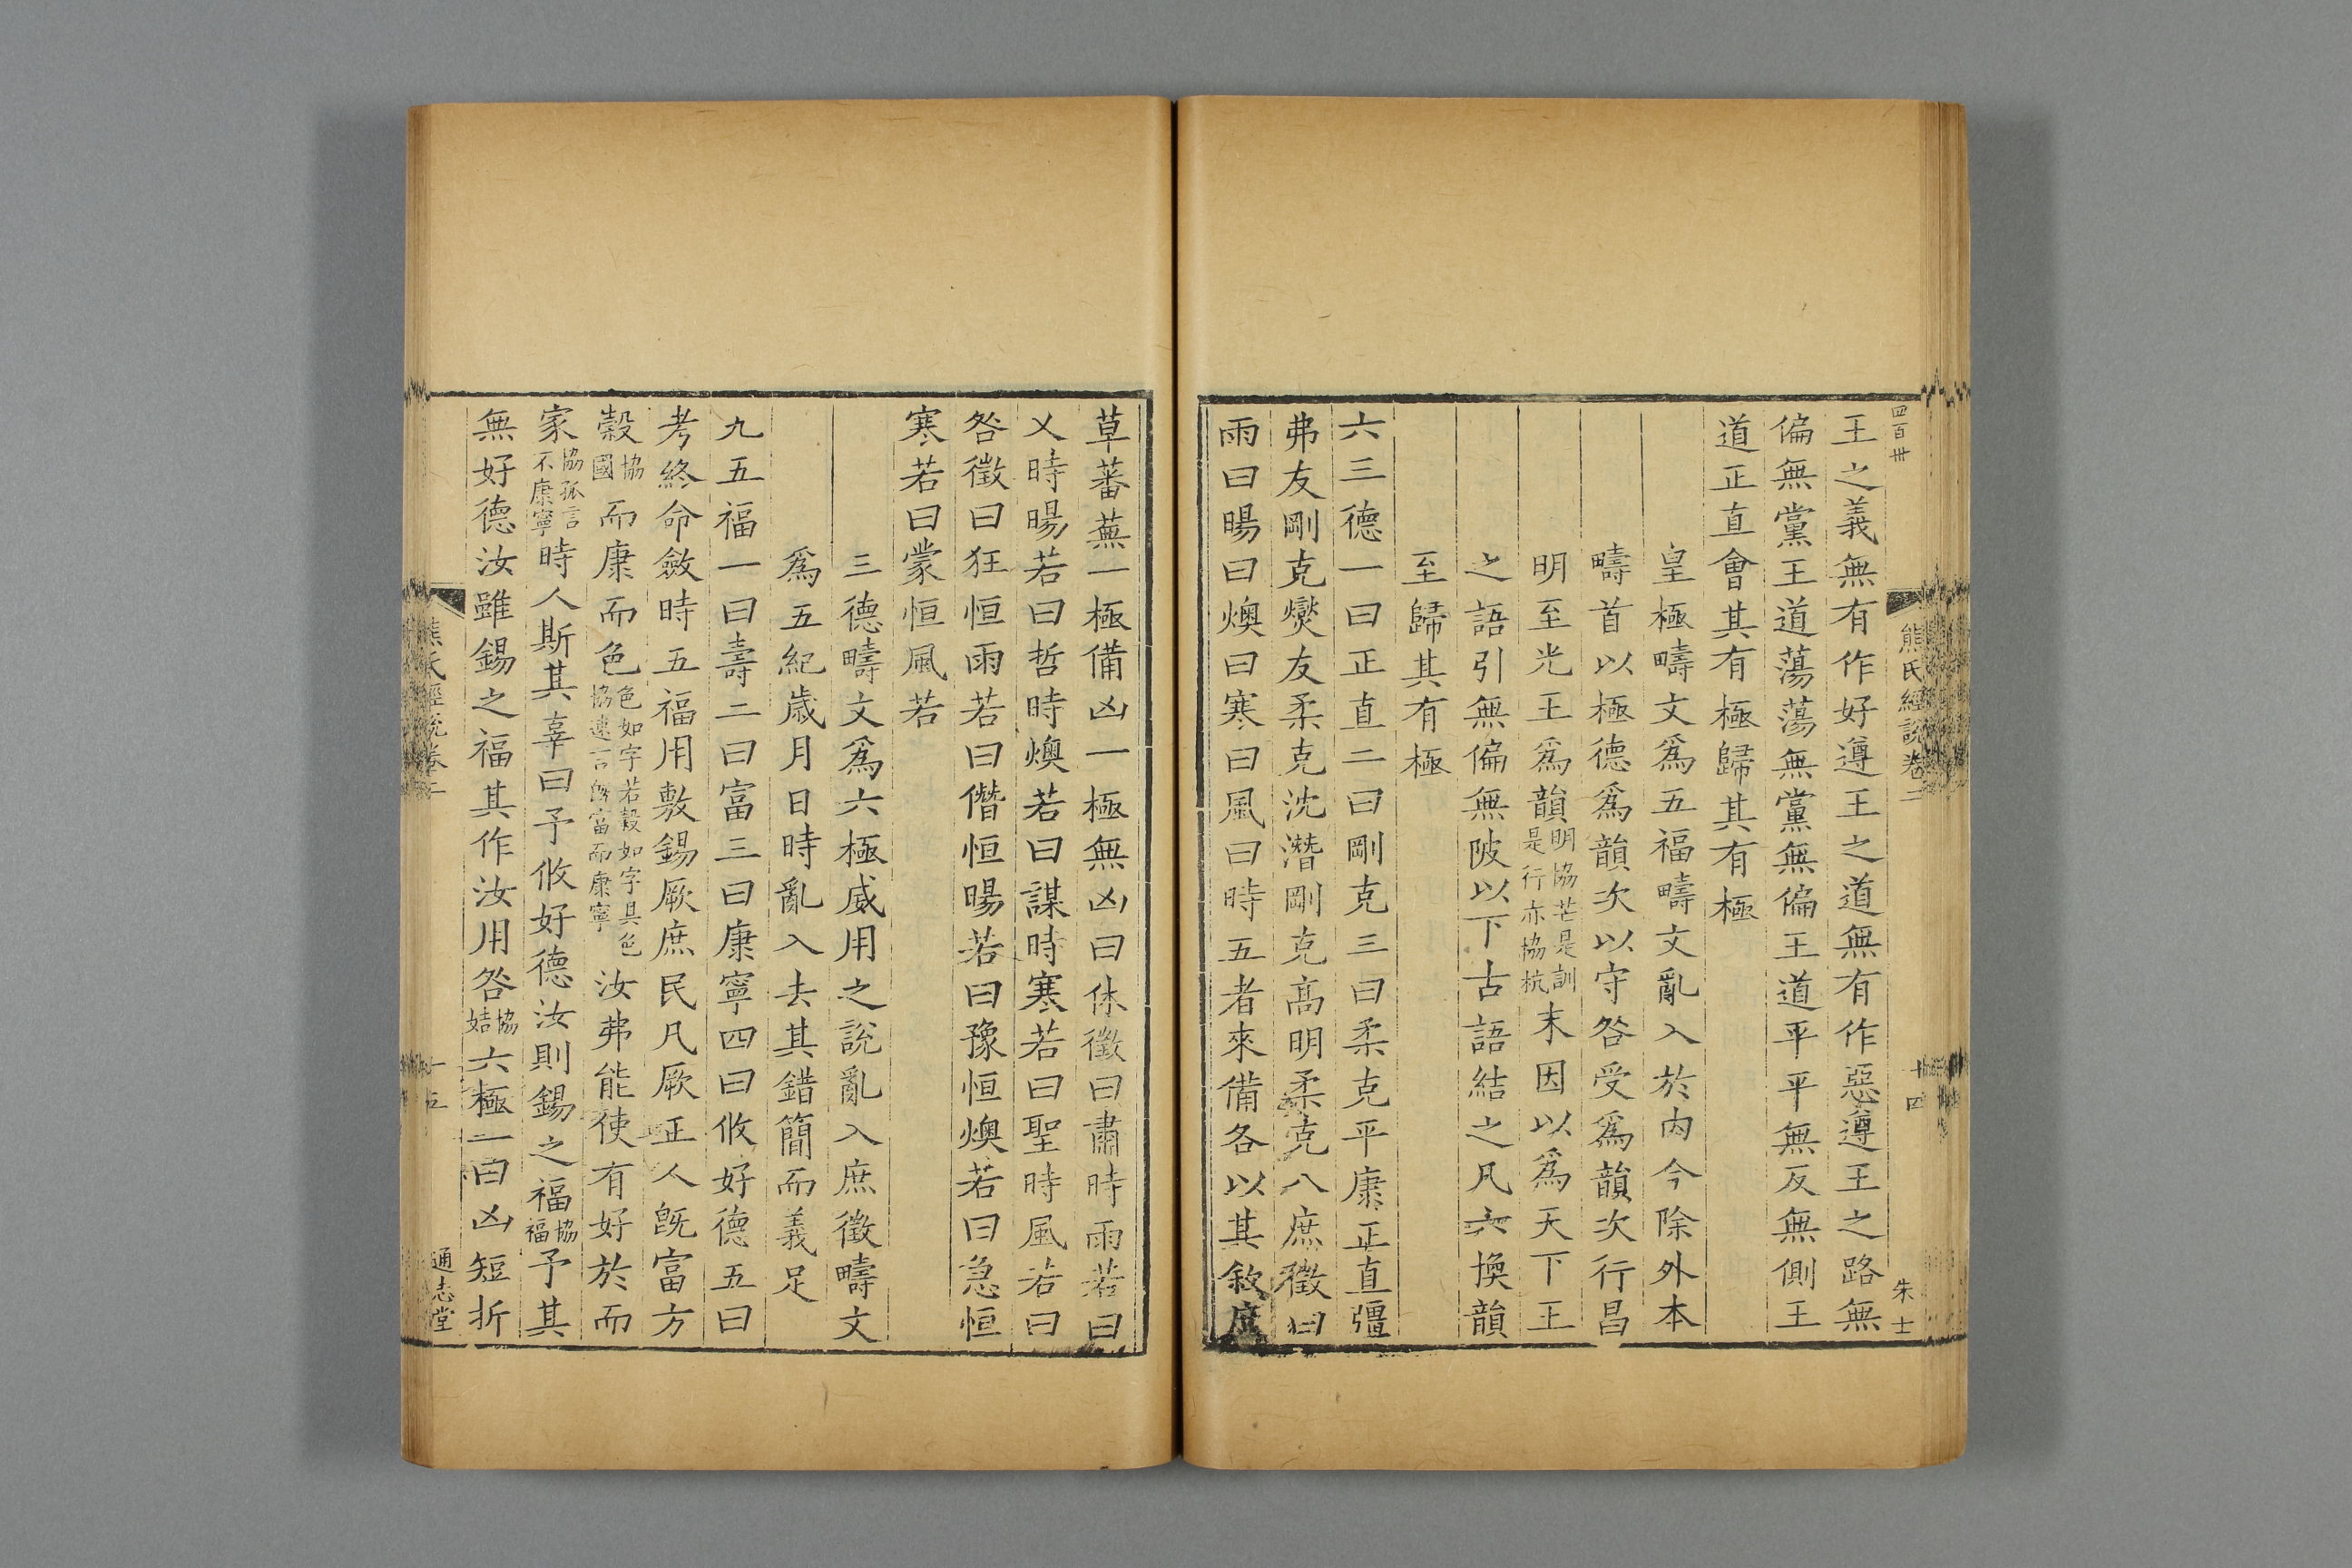 四百卅
熊氏經說卷二
十四
朱士
王之義無有作好遵王之道無有作惡遵王之路無
偏無黨王道蕩蕩無黨無偏王道平平無反無側王
道正直會其有極歸其有極
皇極疇文爲五福疇文亂入於內今除外本
疇首以極德爲韻次以守咎受爲韻次行昌
明至光王爲韻明協芒是訓是行亦協杭末因以爲天下王
之語引無偏無陂以下古語結之凡六換韻
至歸其有極
六三德一曰正直二曰剛克三曰柔克平康正直彊
弗友剛克燮友柔克沈潛剛克高明柔克八庶徵曰
雨曰暘曰燠曰寒曰風曰時五者來備各以其敘庶
草蕃蕪一極備凶一極無凶曰休徵曰肅時雨若曰
乂時暘若曰哲時燠若曰謀時寒若曰聖時風若曰
咎徵曰狂恒雨若曰僭恒暘若曰豫恒燠若曰急恒
寒若曰蒙恒風若
三德疇文爲六極威用之說亂入庶徵疇文
爲五紀歲月日時亂入去其錯簡而義足
九五福一曰壽二曰富三曰康寧四曰攸好德五曰
考終命斂時五福用敷錫厥庶民凡厥正人旣富方
榖協國而康而色色如字若榖如字具色協逑言旣富而康寧汝弗能使有好於而
家協孤言不康寧時人斯其辜曰予攸好德汝則錫之福協福予其
無好德汝雖錫之福其作汝用咎協姞六極一曰凶短折
熊氏經說卷二
十五
通志堂